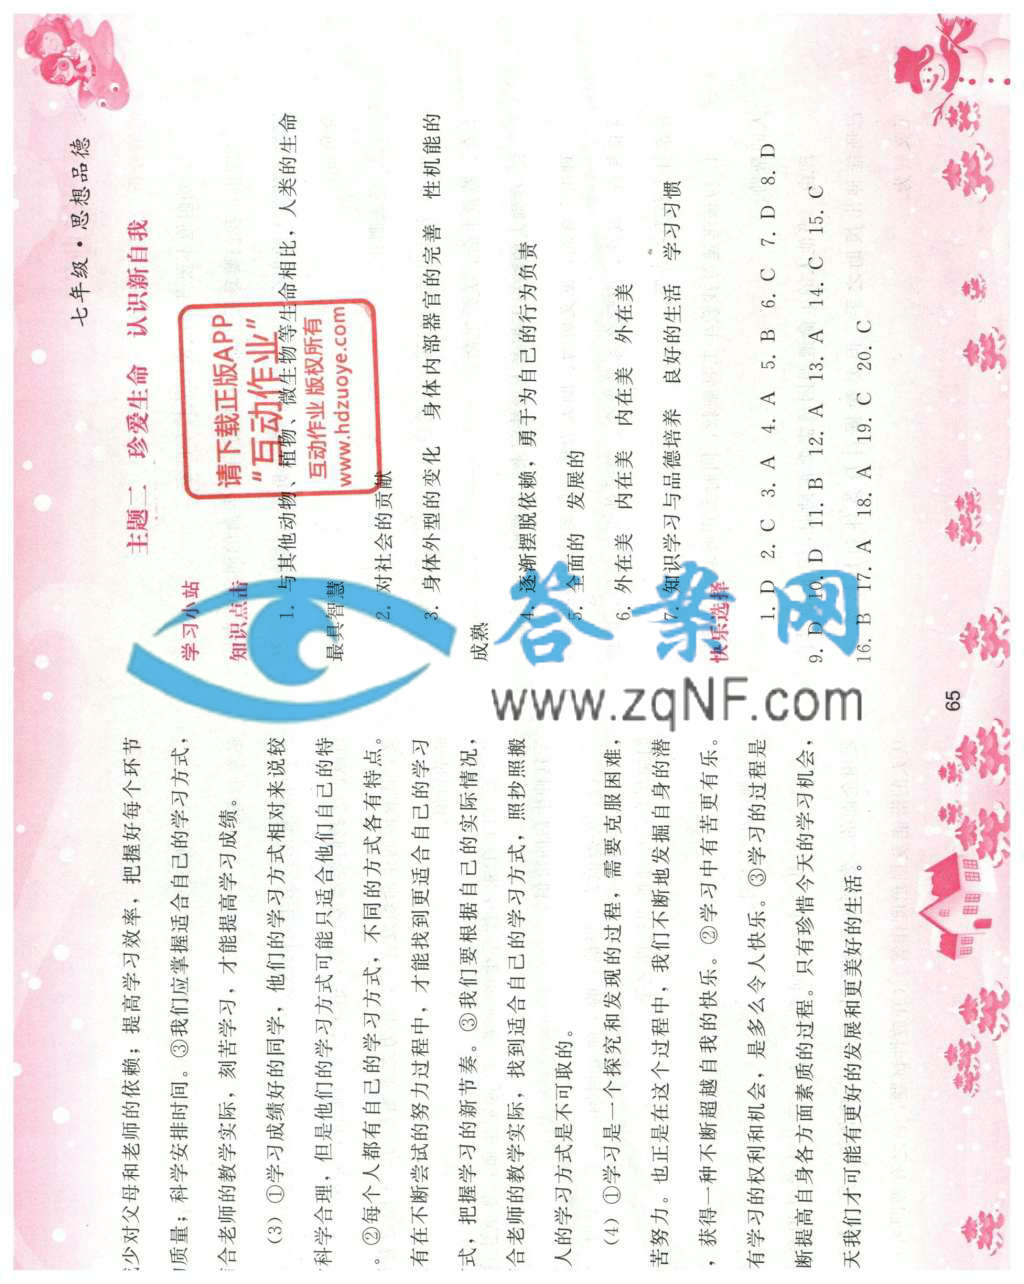 七年级·思想品德
少对父母和老师的依赖；提高学习效率，把握好每个环节
质量；科学安排时间。③我们应掌握适合自己的学习方式，
合老师的教学实际，刻苦学习，才能提高学习成绩。
（3）①学习成绩好的同学，他们的学习方式相对来说较
科学合理，但是他们的学习方式可能只适合他们自己的特
。②每个人都有自己的学习方式，不同的方式各有特点。
有在不断尝试的努力过程中，才能找到更适合自己的学习
式，把握学习的新节奏。③我们要根据自己的实际情况，
合老师的教学实际，找到适合自己的学习方式，照抄照搬
人的学习方式是不可取的。
（4）①学习是一个探究和发现的过程，需要克服困难，
苦努力。也正是在这个过程中，我们不断地发掘自身的潜
，获得一种不断超越自我的快乐。②学习中有苦更有乐。
有学习的权利和机会，是多么令人快乐。③学习的过程是
断提高自身各方面素质的过程。只有珍惜今天的学习机会，
天我们才可能有更好的发展和更美好的生活。
主题二 珍爱生命 认识新自我
学习小站
知识点击
1. 与其他动物、植物、微生物等生命相比，人类的生命
最具智慧
2. 对社会的贡献
3. 身体外型的变化 身体内部器官的完善 性机能的
成熟
4. 逐渐摆脱依赖，勇于为自己的行为负责
5. 全面的 发展的
6. 外在美 内在美 内在美 外在美
7. 知识学习与品德培养 良好的生活 学习习惯
快乐选择
1. D 2. C 3. A 4. A 5. B 6. C 7. D 8. D
9. D 10. D 11. B 12. A 13. A 14. C 15. C
16. B 17. A 18. A 19. C 20. C
65
请下载正版APP
“互动作业”
互动作业 版权所有
www.hdzuoye.com
答案网
www.zqNF.com